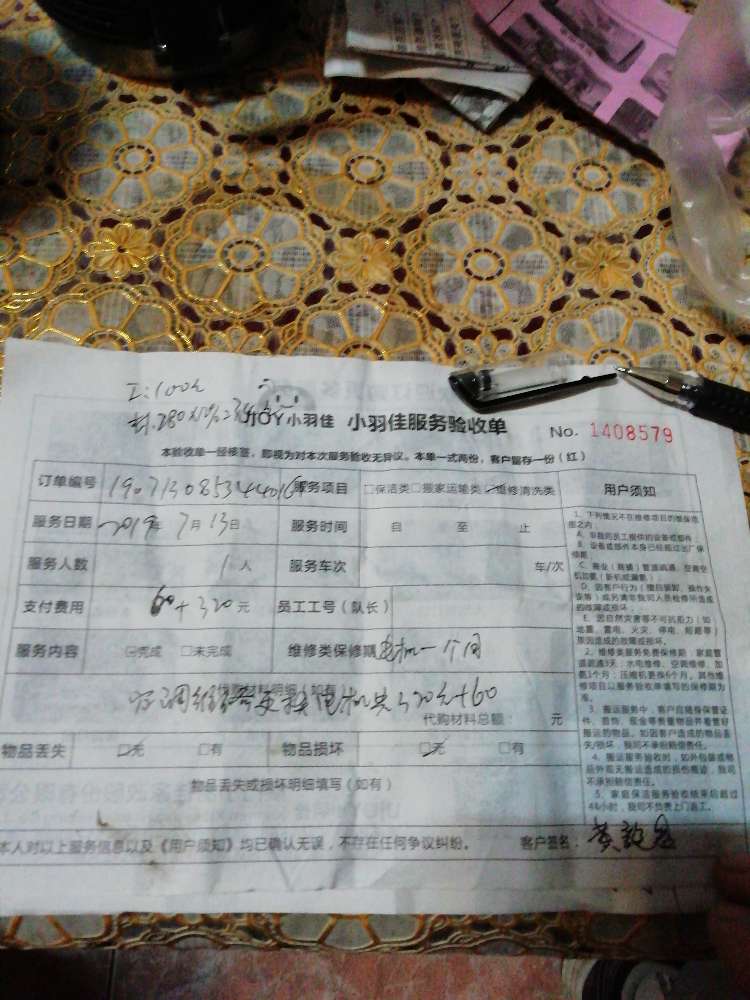 工:100元
JOY 小羽佳 小羽佳服务验收单 No. 1408579
本验收单一经核签，即视为对本次服务验收无异议。本单一式两份，客户留存一份（红）
订单编号 服务项目 □保洁类 □搬家运输类 ☑维修清洗类 用户须知
服务日期 2019年 7月13日 服务时间 自 至 止
服务人数 1 人 服务车次 车/次
支付费用 60+320 元 员工工号（队长）
服务内容 ☑完成 □未完成 维修类保修期 电机一个月
代购材料明细（如有）
空调维修更换电机共320元+60
代购材料总额： 元
物品丢失 ☑无 □有 物品损坏 ☑无 □有
物品丢失或损坏明细填写（如有）
本人对以上服务信息以及《用户须知》均已确认无误，不存在任何争议纠纷。 客户签名：
1、下列情况不在维修项目的整保范
围之内：
A、非我司员工提供的设备或部件；
B、设备或部件本身已经超过出厂保
修期；
E、因自然灾害等不可抗量力（如
地震、雷电、火灾、停电、短路等）
原因造成的故障或损坏。
2、维修类服务免费保修期：家庭管
道疏通3天；水电维修、空调维修、加
氨1个月；压缩机更换6个月。其他维
修项目以服务验收单填写的保修期为
准。
3、搬运服务中，客户应随身保管证
件、首饰、现金等贵重物品并看管好
搬运的物品。如因客户造成的物品丢
失/损坏，我司不承担赔偿责任。
4、搬运服务验收时，如外包装或物
品外观无搬运造成的损伤痕迹，我司不
承担赔偿责任。
5、家庭保洁服务验收结束后超过
48小时，我司不负责上门返工。